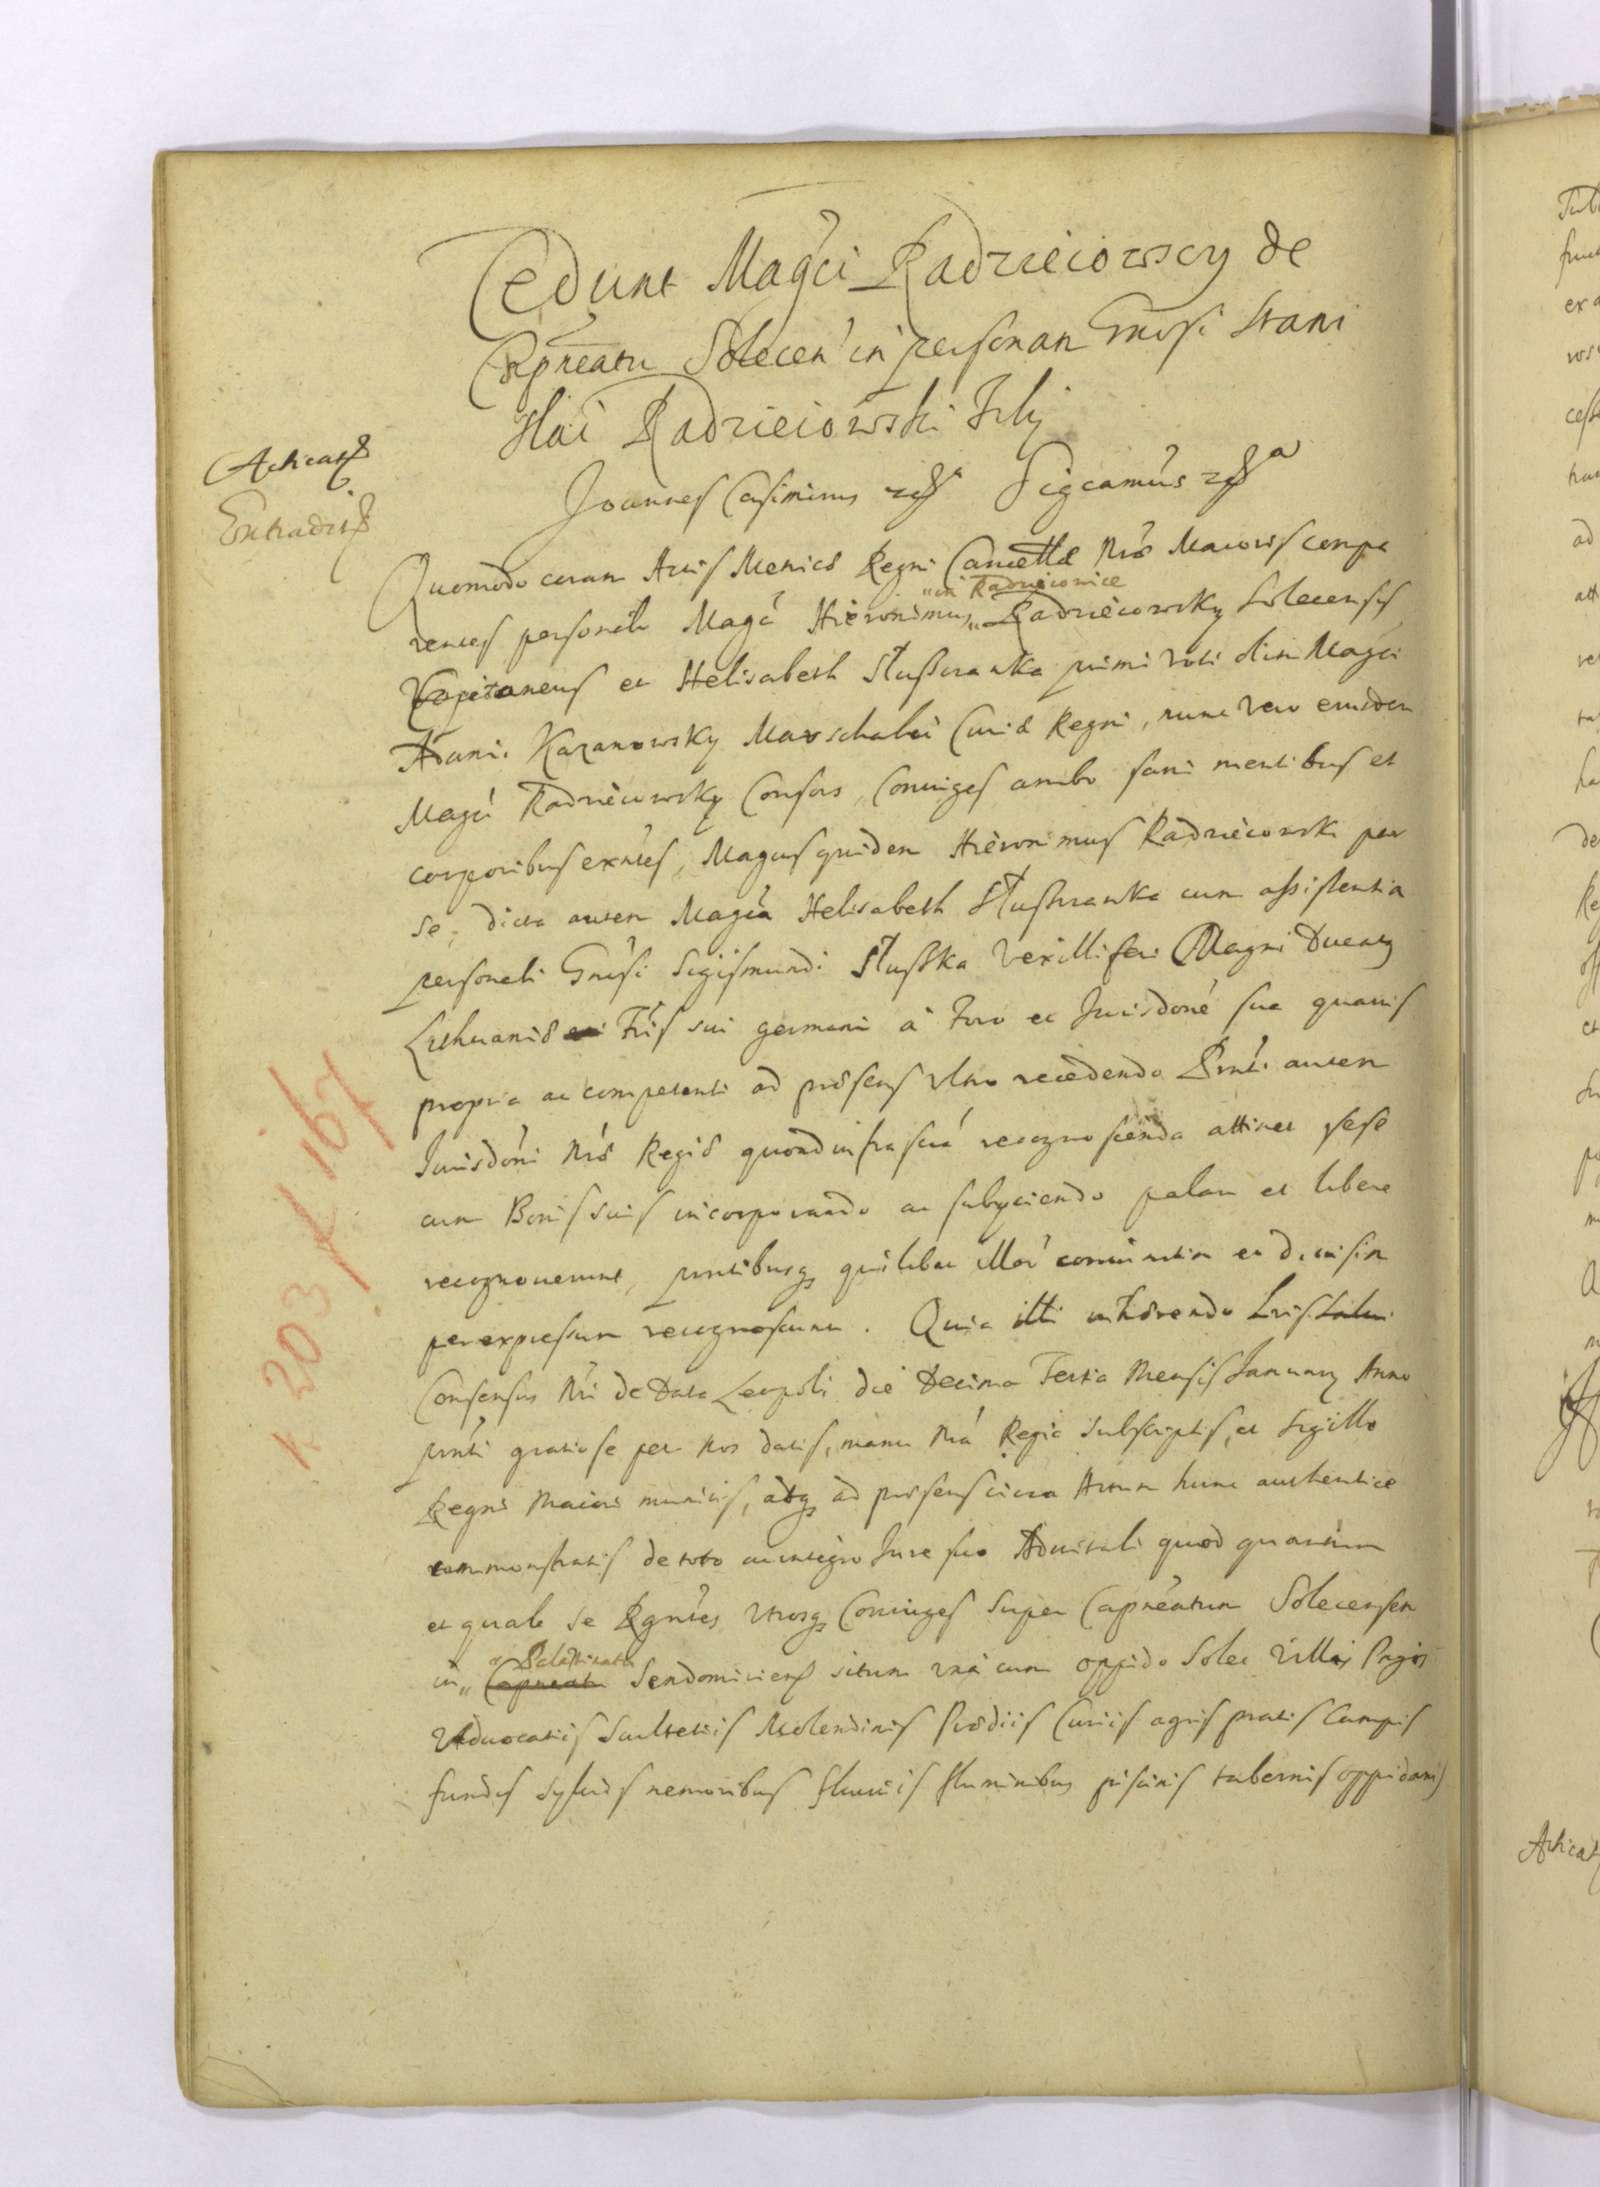 Cedunt Magci Radzieiowscy de
Capneatu Solecen in personam Gnosi Stani
slai Radzieiowski Filij
Acticat
Extradit
Joannes Casimirus Sigcamus
Quomodo coram Actis Metrices Regni Cancellae Nrae Maioris compa
rentes personalr Magcus Hieronimus „in Radzieiowice„ Radzieiowsky Solecensis
Capitaneus et Helisabeth Słuszczanka primi voti olim Magci
Adami Kazanowsky Marschalci Curiae Regni, nunc vero eiusdem
Magci Radzieiowsky Consors, Coniuges ambo sani mentibus et
corporibus existes, Magcus quidem Hieronimus Radzieiowski per
se, dicta autem Magca Helisabeth Słuszczanka cum assistentia
personali Gnosi Sigismundi Słuszka Vexilliferi Magni Ducatq
Lithuaniae Fris sui germani à Foro et Jurisdone sua quavis
propria ac competenti ad praesens vltro recedendo Prnti autem
Jurisdoni Nrae Regiae quoad infrascra recognoscenda attinet sese
cum Bonis suis incorporando ac subyciendo palam et libere
recognoverunt, prntibusq quilibet illor coniunctim et divisim
per expressum recognoscunt. Quia illi inhaerendo Lris
Consensus Nri de Data Leopoli die Decima Tertia Mensis January Anno
prnti gratiose per nos datis, manu Nra Regia Subscriptis, et Sigillo
Regni Maiori munitis, atq ad praesens circa Actum hunc authentice
commonstratis de toto ac integro Jure suo Aduitali quod quantum
et quale se Rgntes vtrosq Coniuges super Capneatum Solecensem
in „Palatinatu Capneatu Sendomiriens situm vna cum oppido Solec Villis Pagis
Aduocatiis Scultetiis Molendinis Praediis Curiis agris pratis Campis
fundis syluis nemoribus fluuiis fluminibus piscinis tabernis oppidanis
K 203 f 167
Acticat